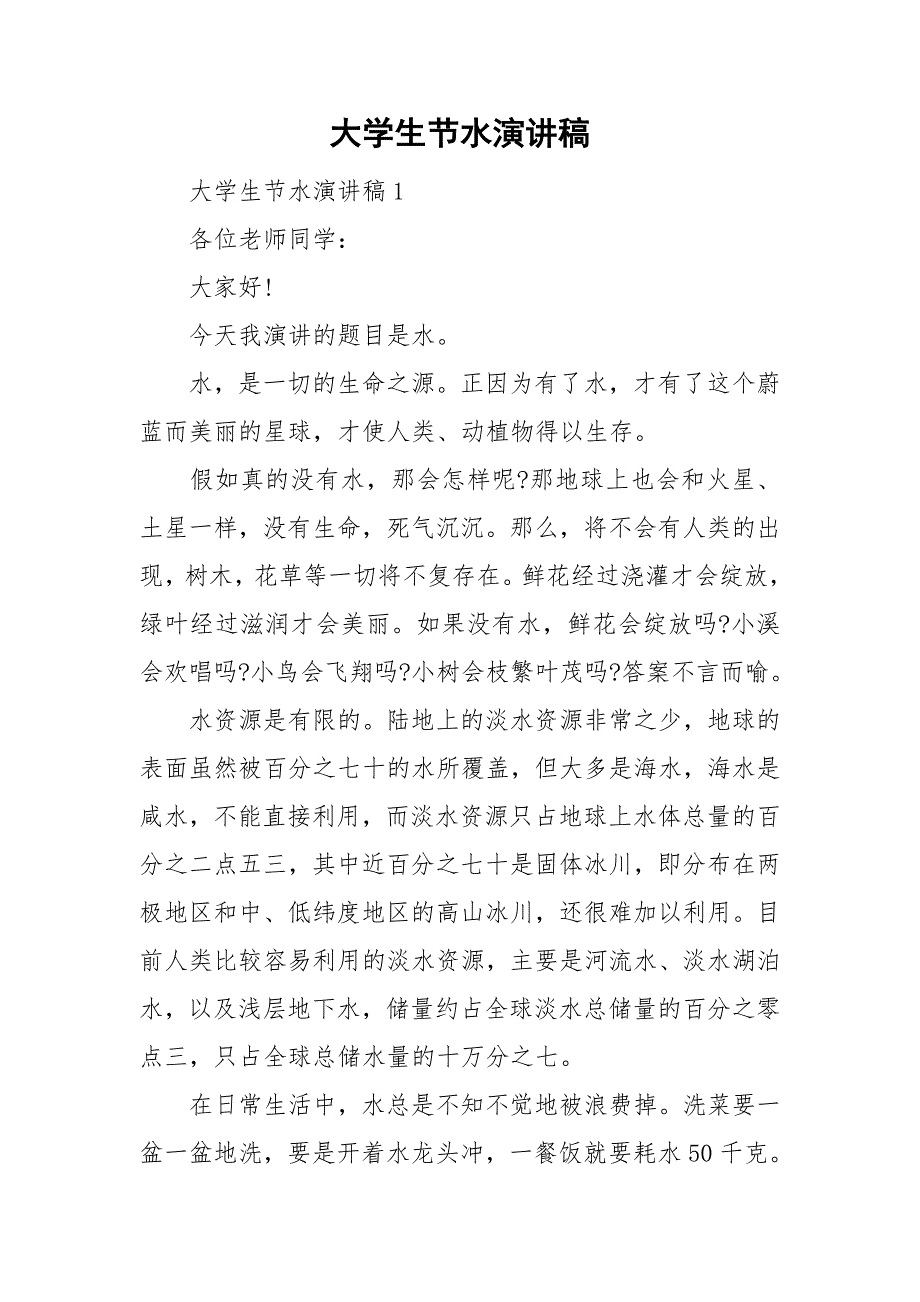 大学生节水演讲稿
大学生节水演讲稿1
各位老师同学：
大家好!
今天我演讲的题目是水。
水，是一切的生命之源。正因为有了水，才有了这个蔚
蓝而美丽的星球，才使人类、动植物得以生存。
假如真的没有水，那会怎样呢?那地球上也会和火星、
土星一样，没有生命，死气沉沉。那么，将不会有人类的出
现，树木，花草等一切将不复存在。鲜花经过浇灌才会绽放，
绿叶经过滋润才会美丽。如果没有水，鲜花会绽放吗?小溪
会欢唱吗?小鸟会飞翔吗?小树会枝繁叶茂吗?答案不言而喻。
水资源是有限的。陆地上的淡水资源非常之少，地球的
表面虽然被百分之七十的水所覆盖，但大多是海水，海水是
咸水，不能直接利用，而淡水资源只占地球上水体总量的百
分之二点五三，其中近百分之七十是固体冰川，即分布在两
极地区和中、低纬度地区的高山冰川，还很难加以利用。目
前人类比较容易利用的淡水资源，主要是河流水、淡水湖泊
水，以及浅层地下水，储量约占全球淡水总储量的百分之零
点三，只占全球总储水量的十万分之七。
在日常生活中，水总是不知不觉地被浪费掉。洗菜要一
盆一盆地洗，要是开着水龙头冲，一餐饭就要耗水50千克。